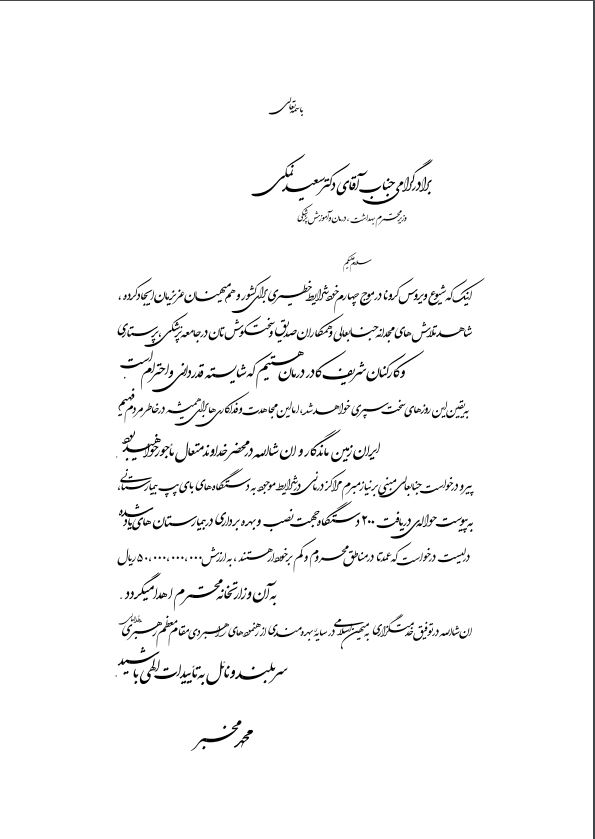 باسمه تعالی
برادر گرامی جناب آقای دکتر سعید نمکی
وزیر محترم بهداشت، درمان و آموزش پزشکی
سلام علیکم
اینک که شیوع ویروس کرونا در موج چهارم خود شرایط خطیری برای کشور و هم میهنان عزیزمان ایجاد کرده،
شاهد تلاش های مجدانه جنابعالی و همکاران صدیق و سخت کوش تان در جامعه پزشکی، پرستاری
و کارکنان شریف کادر درمان هستیم که شایسته قدردانی و احترام است
به یقین این روزهای سخت سپری خواهد شد، اما این مجاهدت و فداکاری ها برای همیشه در خاطر مردم فهیم
ایران زمین ماندگار و ان شاالله در محضر خداوند متعال مأجور خواهید بود.
پیرو درخواست جنابعالی مبنی بر نیاز مبرم مراکز درمانی در شرایط موجود به دستگاه های بای پپ بیمارستانی،
به پیوست حواله ی دریافت ۲۰۰ دستگاه جهت نصب و بهره برداری در بیمارستان های یاد شده
در لیست درخواست که عمدتا در مناطق محروم و کم برخوردار هستند، به ارزش ۵۰،۰۰۰،۰۰۰،۰۰۰ ریال
به آن وزارتخانه محترم اهدا میگردد.
ان شاالله در توفیق خدمتگزاری به میهن اسلامی در سایه بهره مندی از رهنمودهای راهبردی مقام معظم رهبری
سربلند و نائل به تأییدات الهی باشید.
محمد مخبر